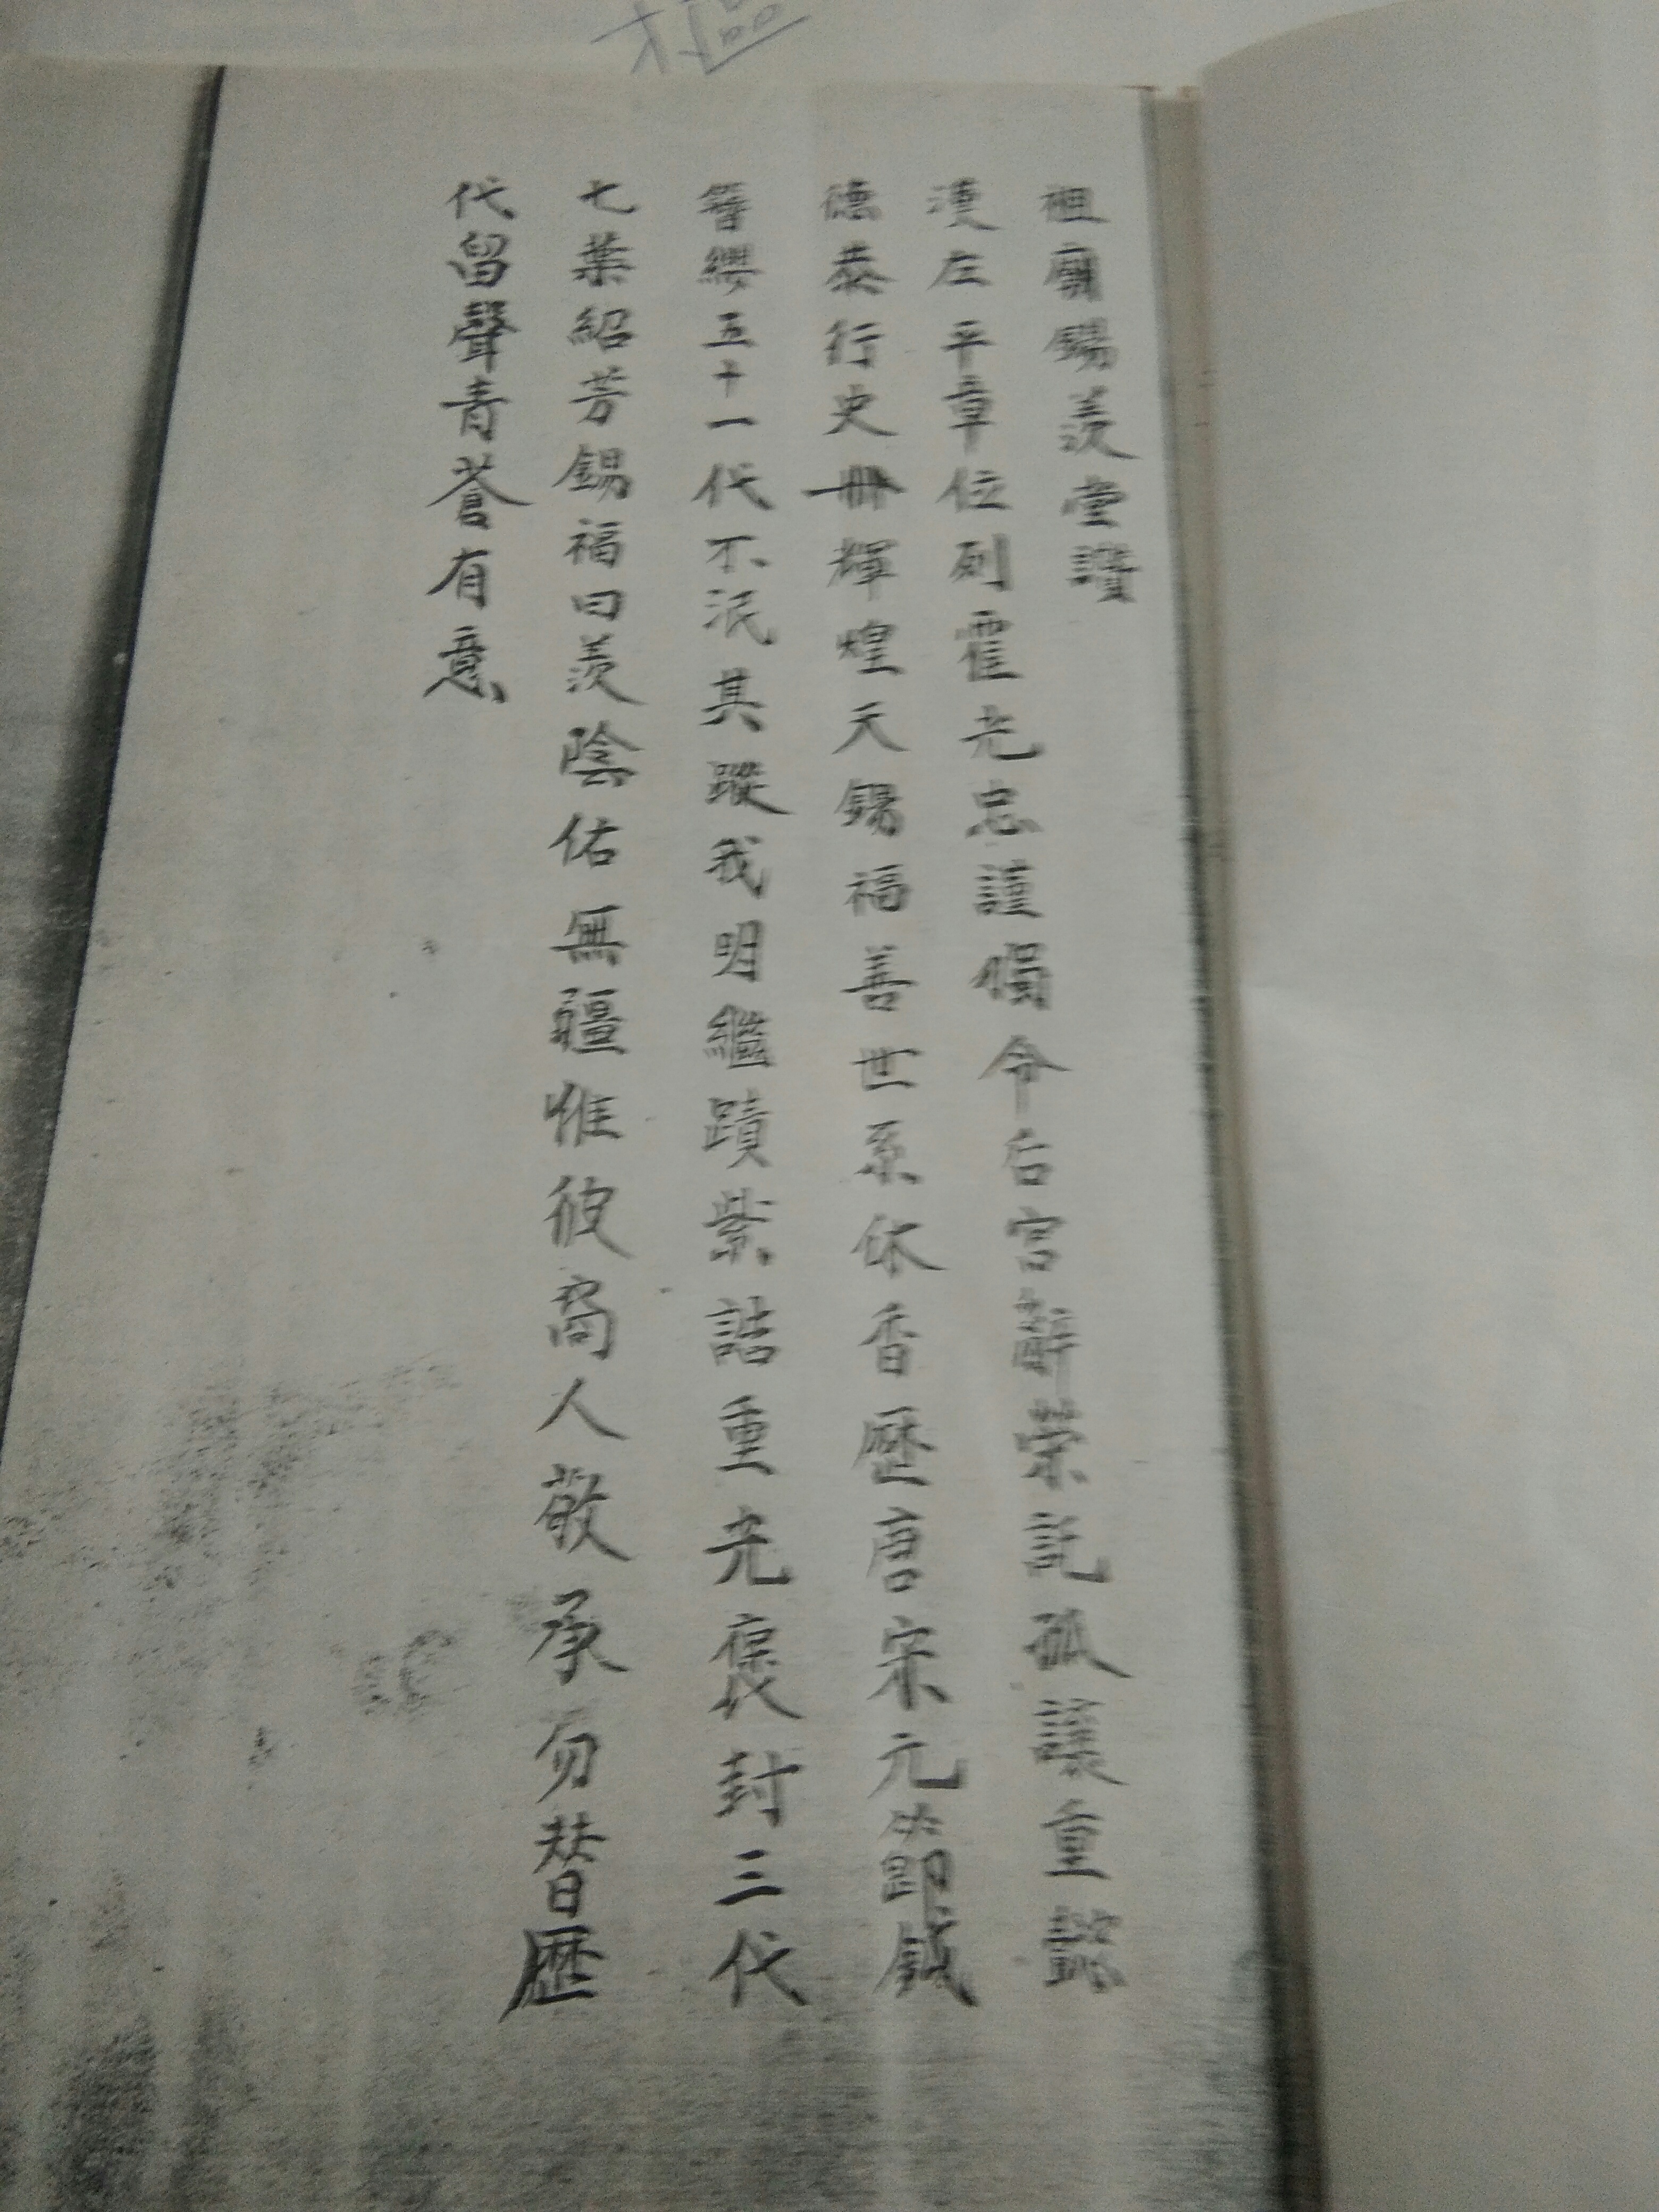 祖廟錫羨堂讚
漢左平章位列霍光忠謹燭令后宮辭榮託孤讓重懿
德恭行史冊輝煌天錫福善世系休香歷唐宋元節鉞
簪纓五十一代不泯其蹤我明繼蹟紫誥重光褒封三代
七葉紹芳錫福曰羨陰佑無疆惟彼裔人敬承勿替歷
代留聲青蒼有意
樞